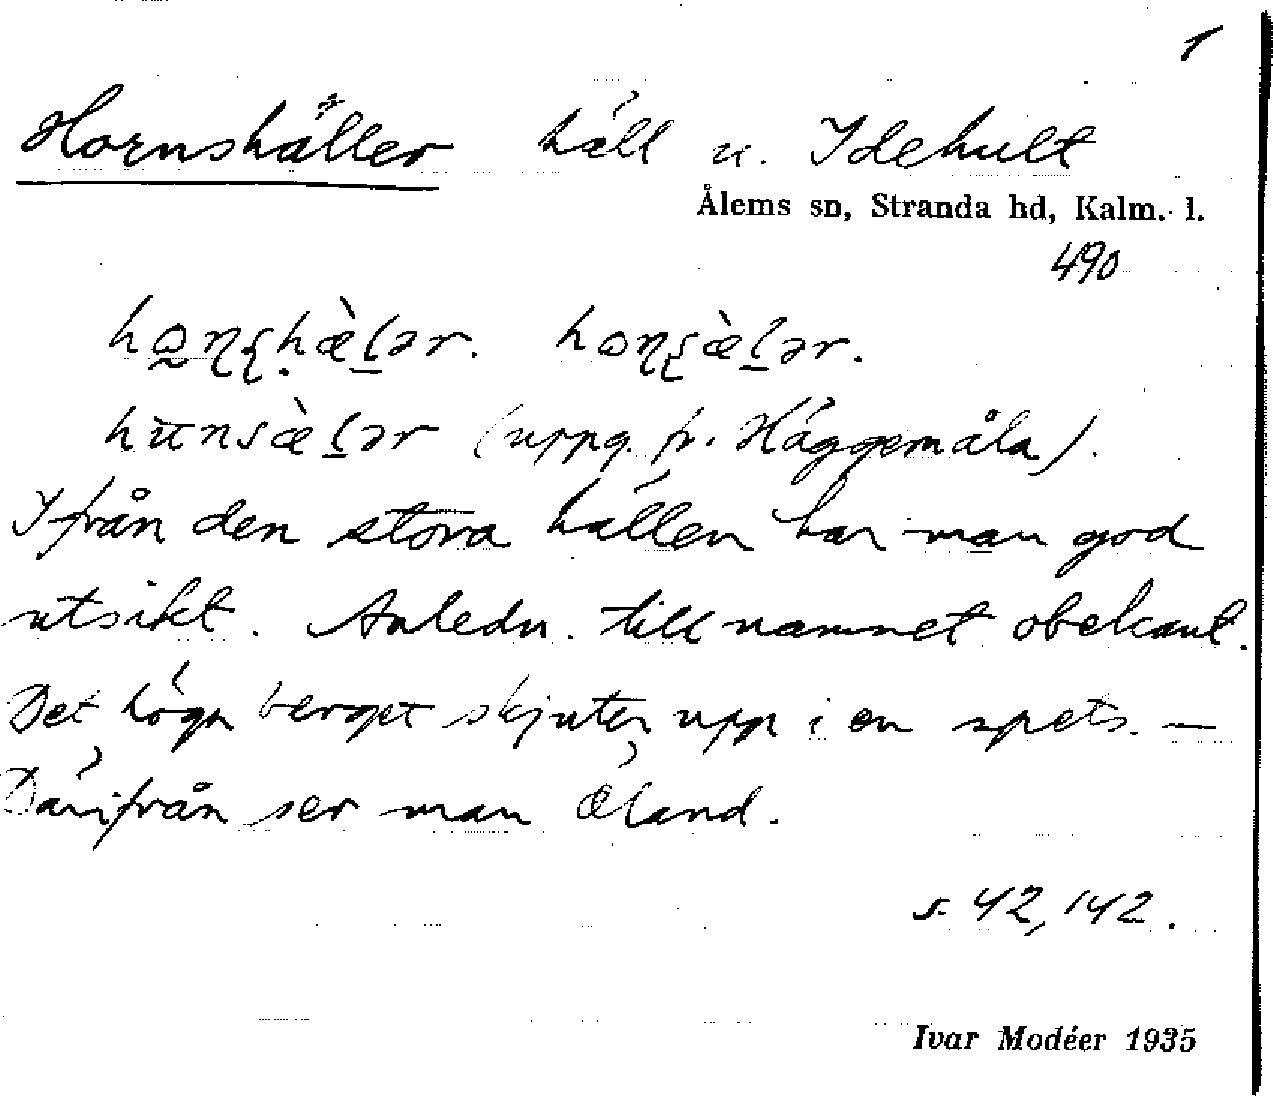 1
Hornshäller häll u. Idehult
Ålems sn, Stranda hd, Kalm. l.
490
(uppg. fr. Häggemåla).
Ifrån den stora hällen har man god
utsikt. Anledn. till namnet obekant.
Det höga berget skjuter upp i en spets. —
Därifrån ser man Öland.
s. 42, 142.
Ivar Modéer 1935